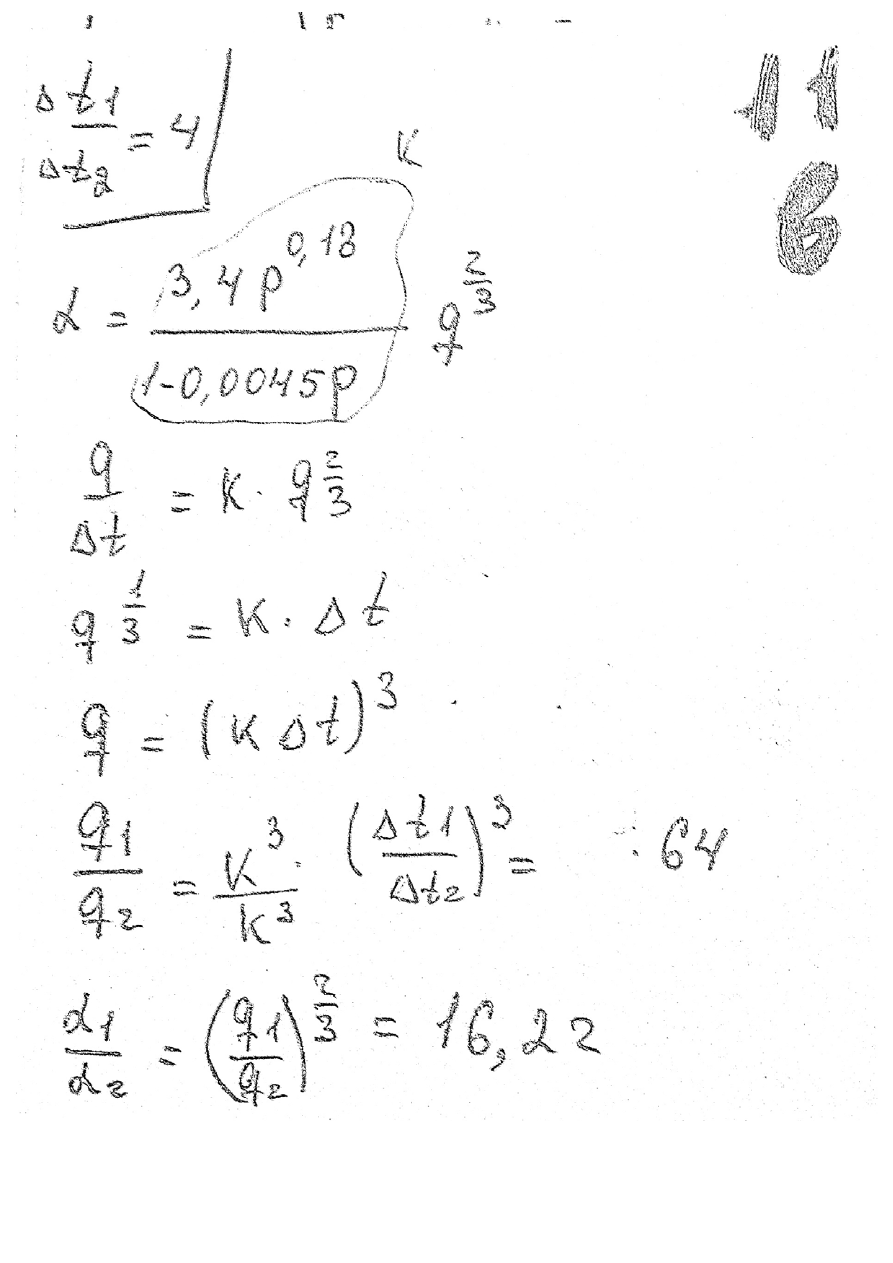 Δt1/Δt2 = 4
11
6
K
α = 3,4 p^0,18 / 1-0,0045p q^2/3
q/Δt = K · q^2/3
q^1/3 = K · Δt
q = (K Δt)^3
q1/q2 = K^3/K^3 · (Δt1/Δt2)^3 = 64
α1/α2 = (q1/q2)^2/3 = 16,22